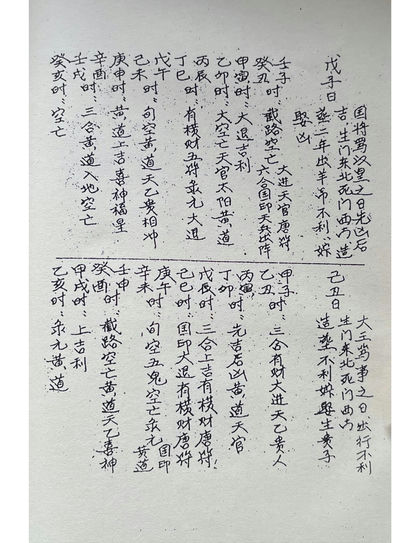 戊子日
国将骂以皇之日先凶后
吉,生门东北死门西南造
葬二年出羊吊不利嫁
娶凶
壬子时:截路空亡 大进天官唐符
癸丑时: 六合国印天兵出阵
甲寅时:大退吉利
乙卯时:大空亡天官太阳黄道
丙辰时:
丁巳时:有横财五符乐元大进
戊午时
己未时:句空黄道天乙贵相冲
庚申时:黄道上吉喜神福星
辛酉时
壬戌时:三合黄道入地空亡
癸亥时:空亡
己丑日
大王骂事之日出行不利
生门东北死门西南
造葬不利嫁娶生贵子
甲子时:三合有财大进天乙贵人
乙丑时
丙寅时:先吉后凶黄道天官
丁卯时
戊辰时:三合上吉有横财唐符
己巳时:国印大退有横财唐符
庚午时:句空五鬼空亡乐元国印
辛未时 黄道
壬申时:截路空亡黄道天乙喜神
癸酉时
甲戌时:上吉利
乙亥时:乐元黄道